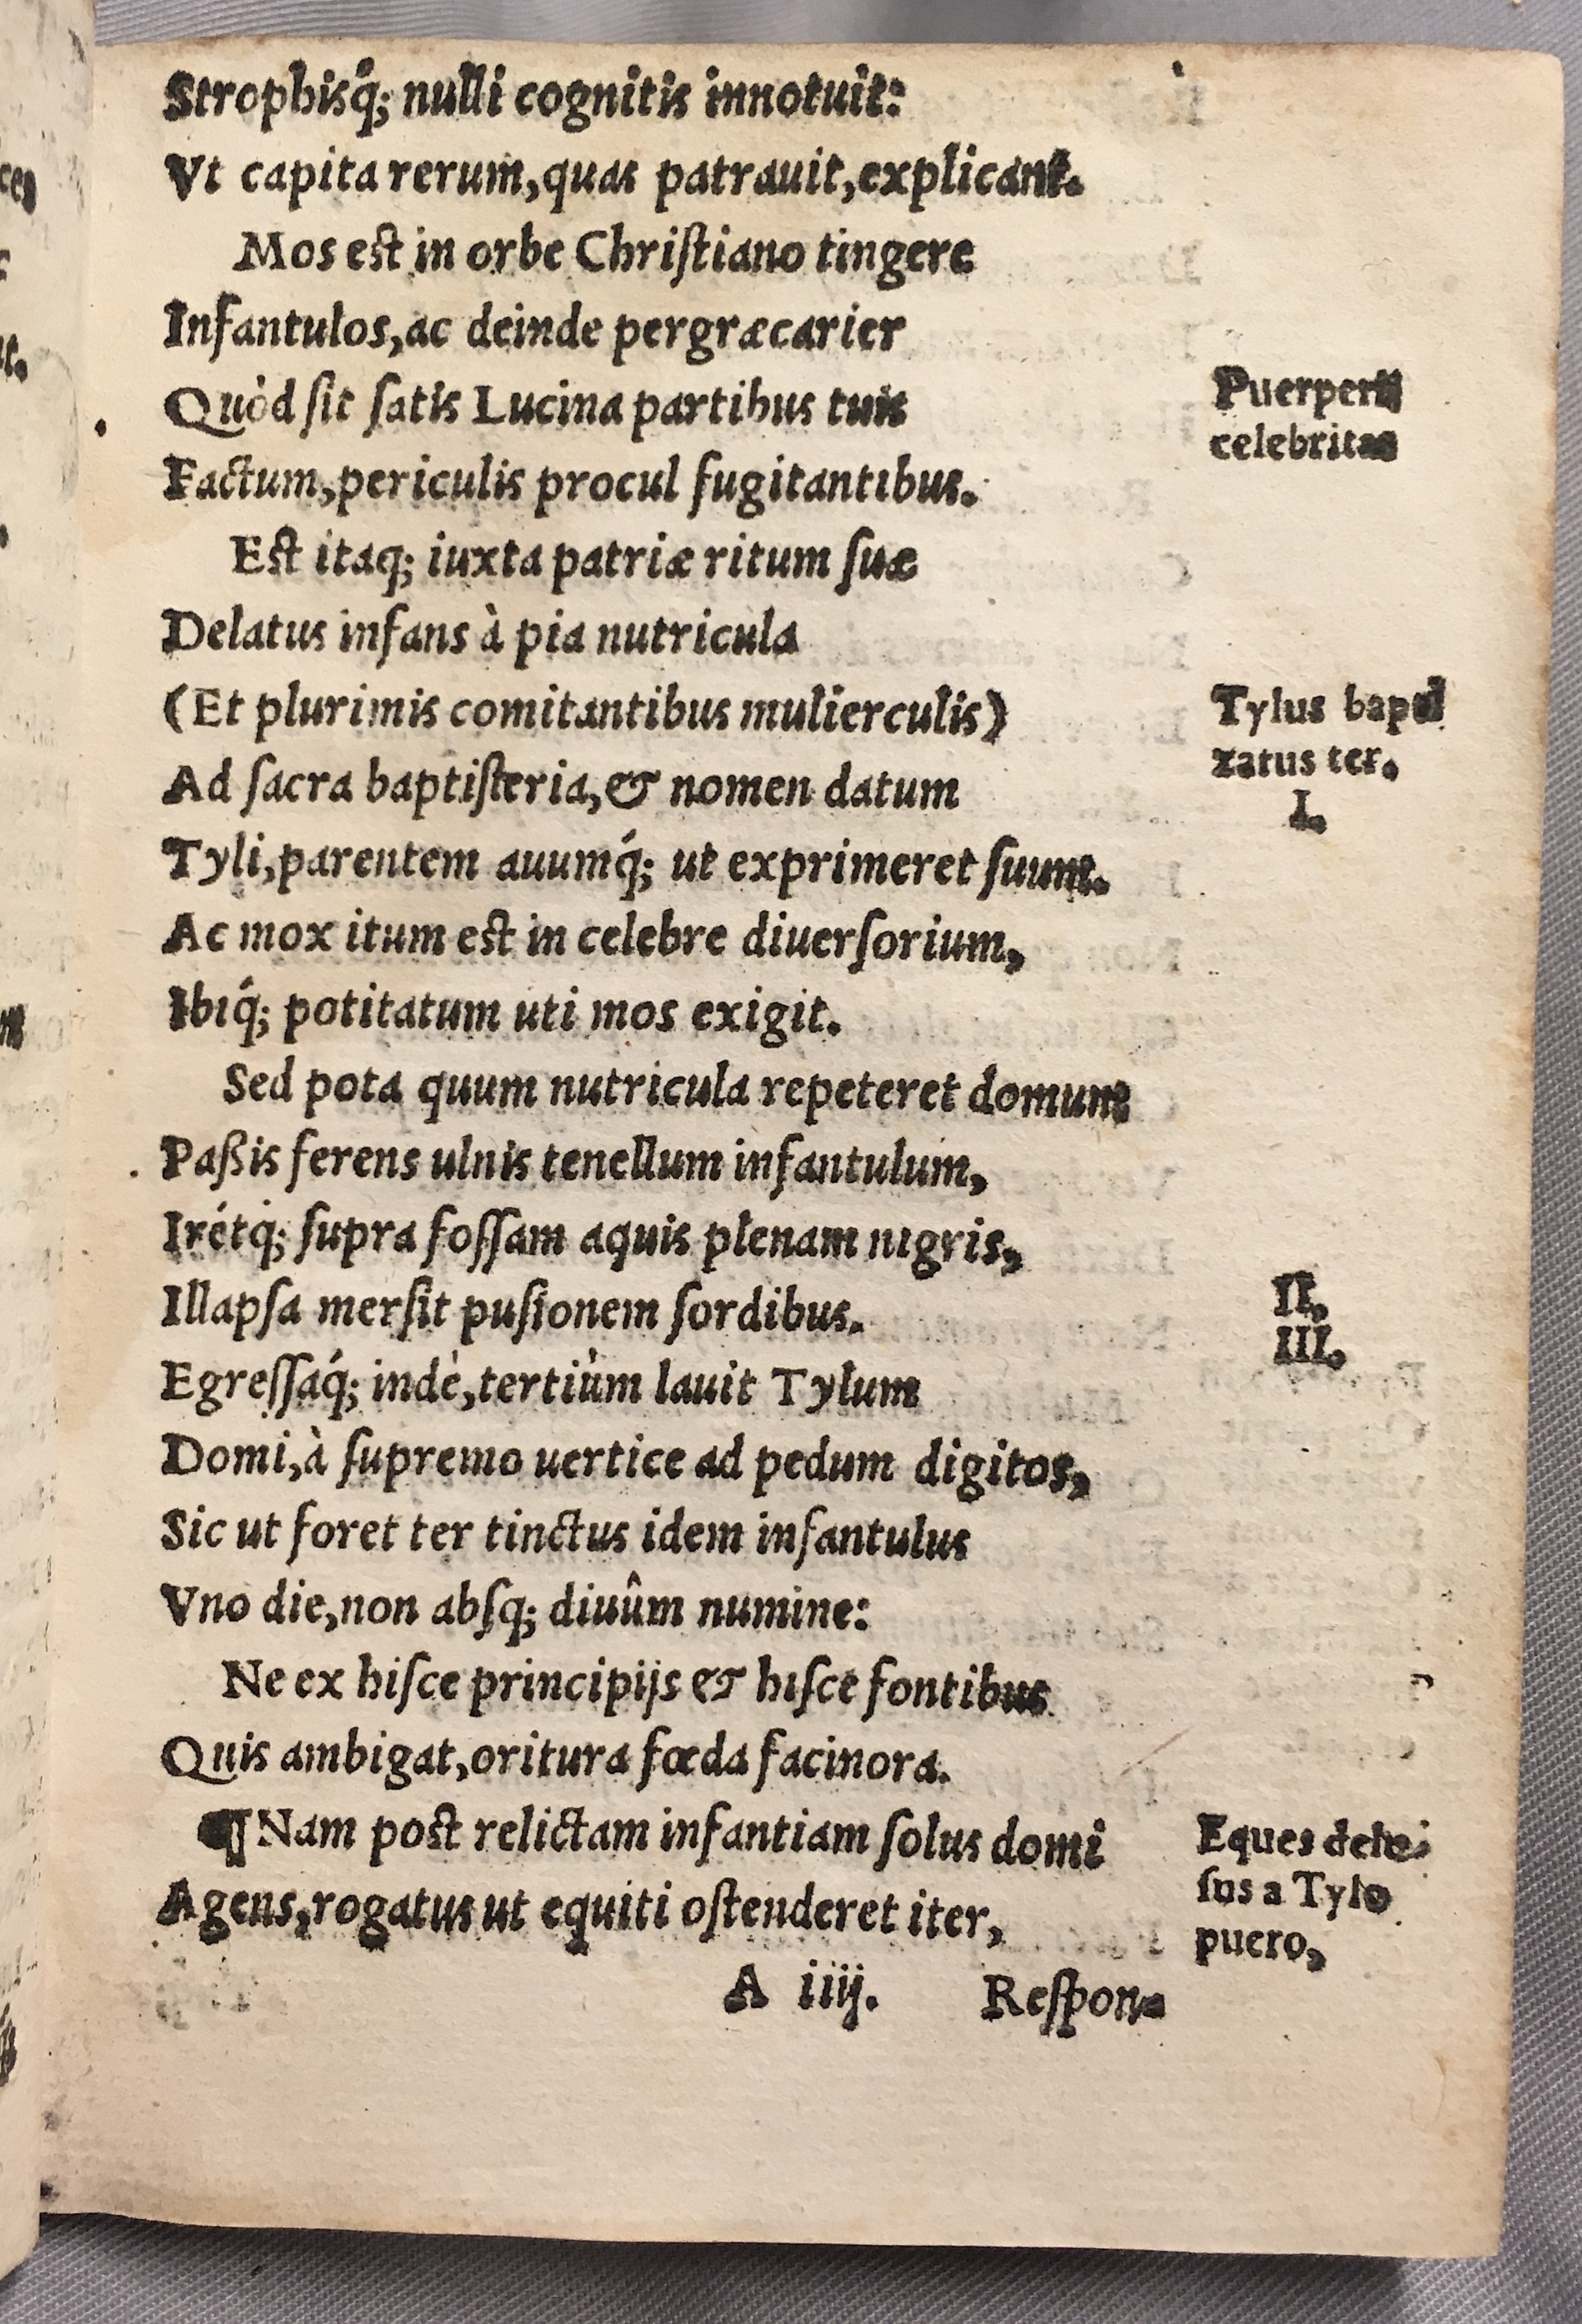 Strophisq́; nulli cognitis innotuit:
Vt capita rerum, quas patrauit, explicant.
Mos est in orbe Christiano tingere
Infantulos, ac deinde pergræcarier
Quòd sit satis Lucina partibus tuis
Puerperij
celebritas
Factum, periculis procul fugitantibus.
Est itaq; iuxta patriæ ritum suæ
Delatus infans à pia nutricula
(Et plurimis comitantibus mulierculis)
Tylus bapti
zatus ter.
I.
Ad sacra baptisteria, & nomen datum
Tyli, parentem auumq́; ut exprimeret suum.
Ac mox itum est in celebre diuersorium,
Ibiq́; potitatum uti mos exigit.
Sed pota quum nutricula repeteret domum
Paßis ferens ulnis tenellum infantulum,
Irétq; supra fossam aquis plenam nigris,
Illapsa mersit pusionem sordibus.
II.
III.
Egressaq́; indè, tertiùm lauit Tylum
Domi, à supremo uertice ad pedum digitos,
Sic ut foret ter tinctus idem infantulus
Vno die, non absq; diuûm numine:
Ne ex hisce principijs & hisce fontibus
Quis ambigat, oritura fœda facinora.
¶ Nam post relictam infantiam solus domi
Eques
sus a Tylo
puero,
Agens, rogatus ut equiti ostenderet iter,
A iiij. Respon-